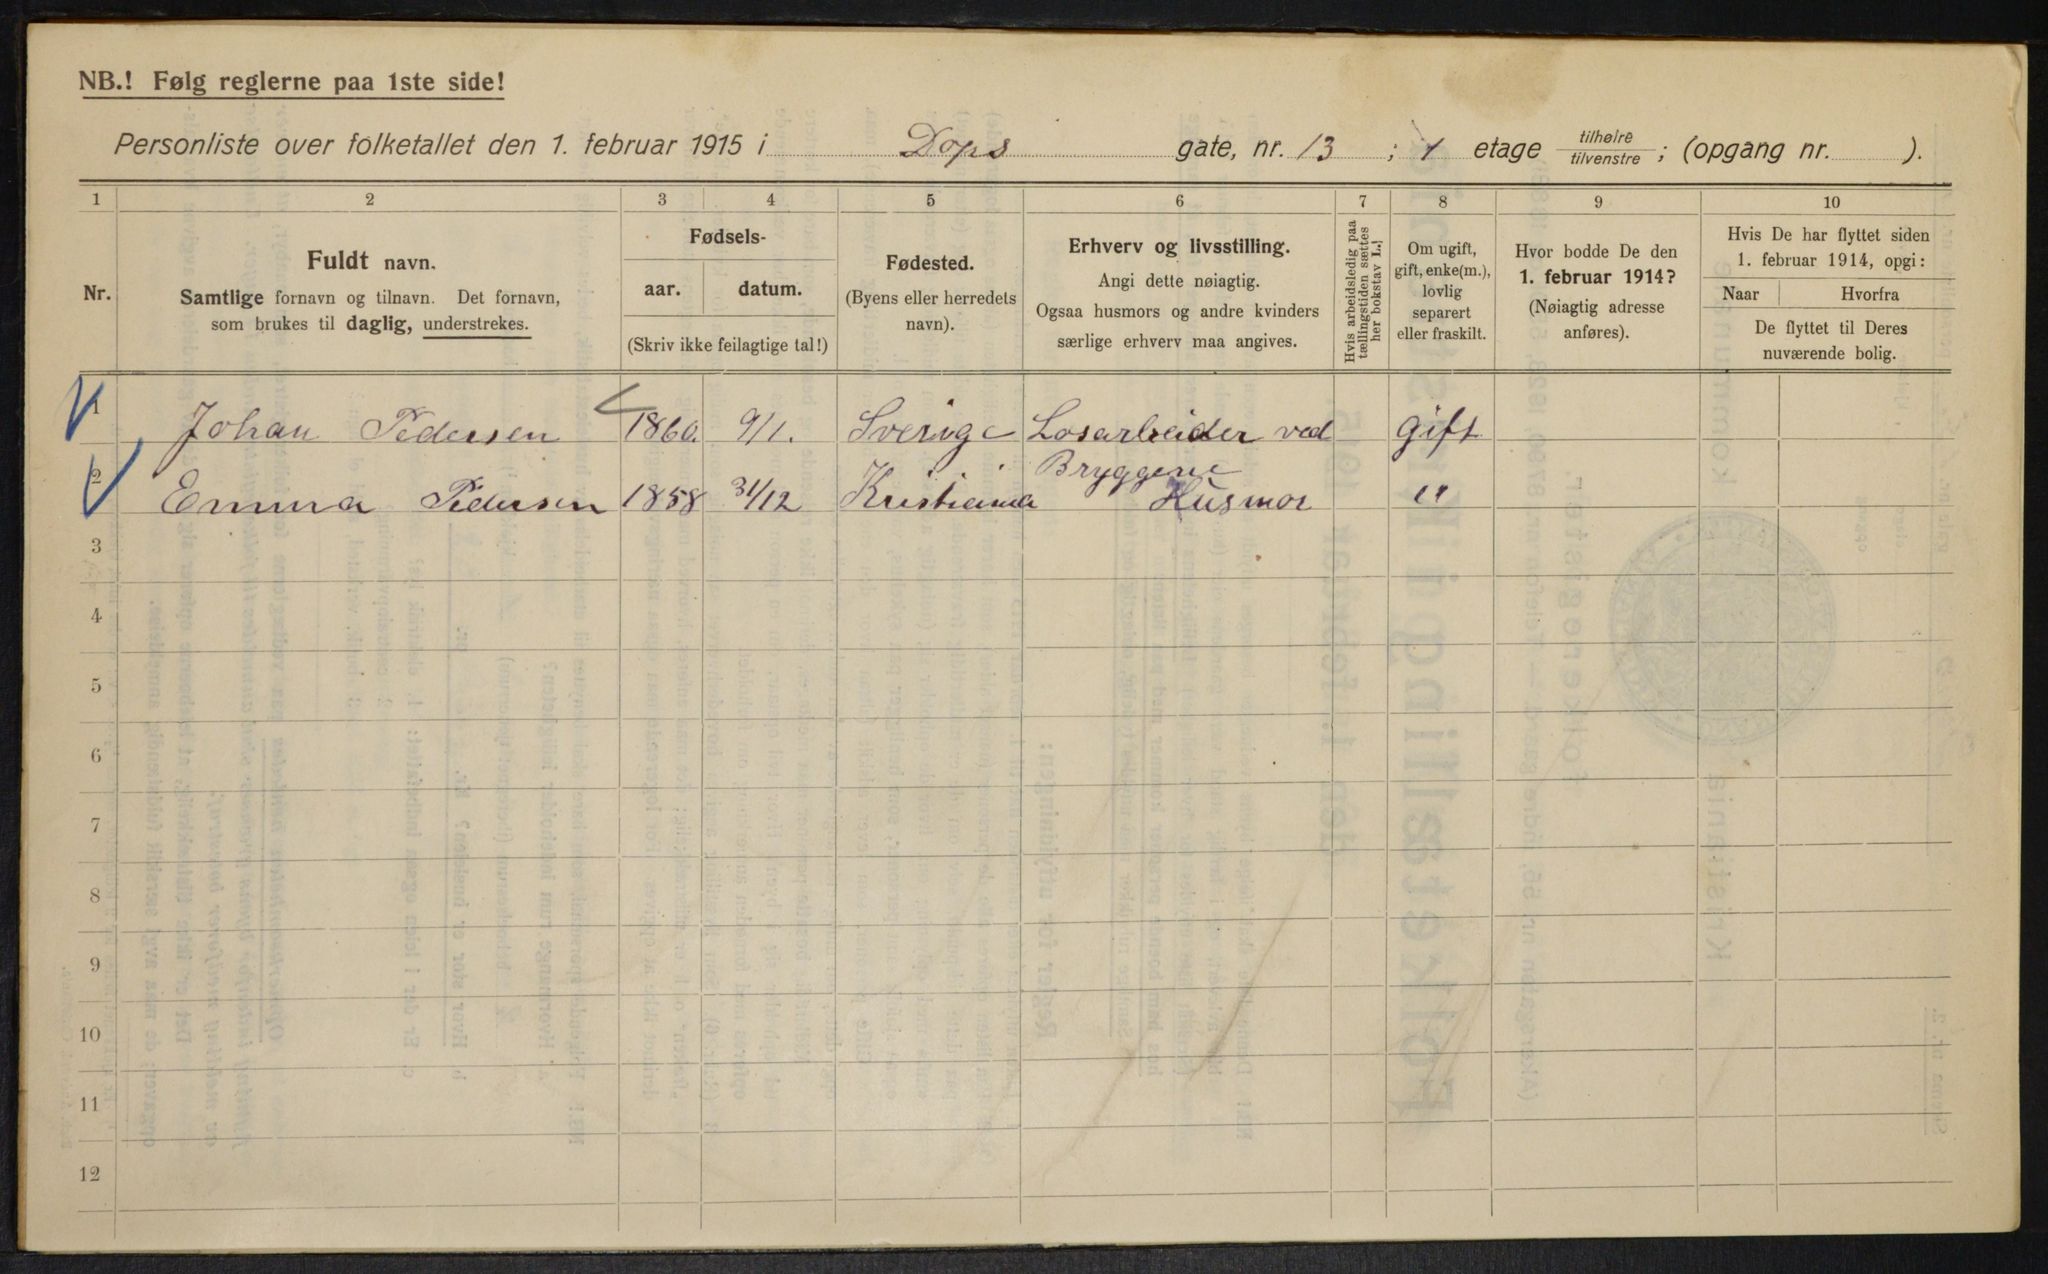 NB.! Følg reglerne paa 1ste side!
Personliste over folketallet den 1. februar 1915 i Dops gate, nr. 13 ; 1 etage tilhøire tilvenstre ; (opgang nr. ).
1 2 3 4 5 6 7 8 9 10
Nr.
Fuldt navn.
Samtlige fornavn og tilnavn. Det fornavn,
som brukes til daglig, understrekes.
Fødsels-
aar. datum.
(Skriv ikke feilagtige tal!)
Fødested.
(Byens eller herredets
navn).
Erhverv og livsstilling.
Angi dette nøiagtig.
Ogsaa husmors og andre kvinders
særlige erhverv maa angives.
Hvis arbeidsledig paa
tællingstiden sættes
her bokstav L.)
Om ugift,
gift, enke(m.),
lovlig
separert
eller fraskilt.
Hvor bodde De den
1. februar 1914?
(Nøiagtig adresse
anføres).
Hvis De har flyttet siden
1. februar 1914, opgi:
Naar Hvorfra
De flyttet til Deres
nuværende bolig.
1 Johan Pedersen 1860. 9/1. Sverige Losarbeider ved Bryggene gift
2 Emma Pedersen 1858 31/12 Kristiania Husmor "
3
4
5
6
7
8
9
10
11
12